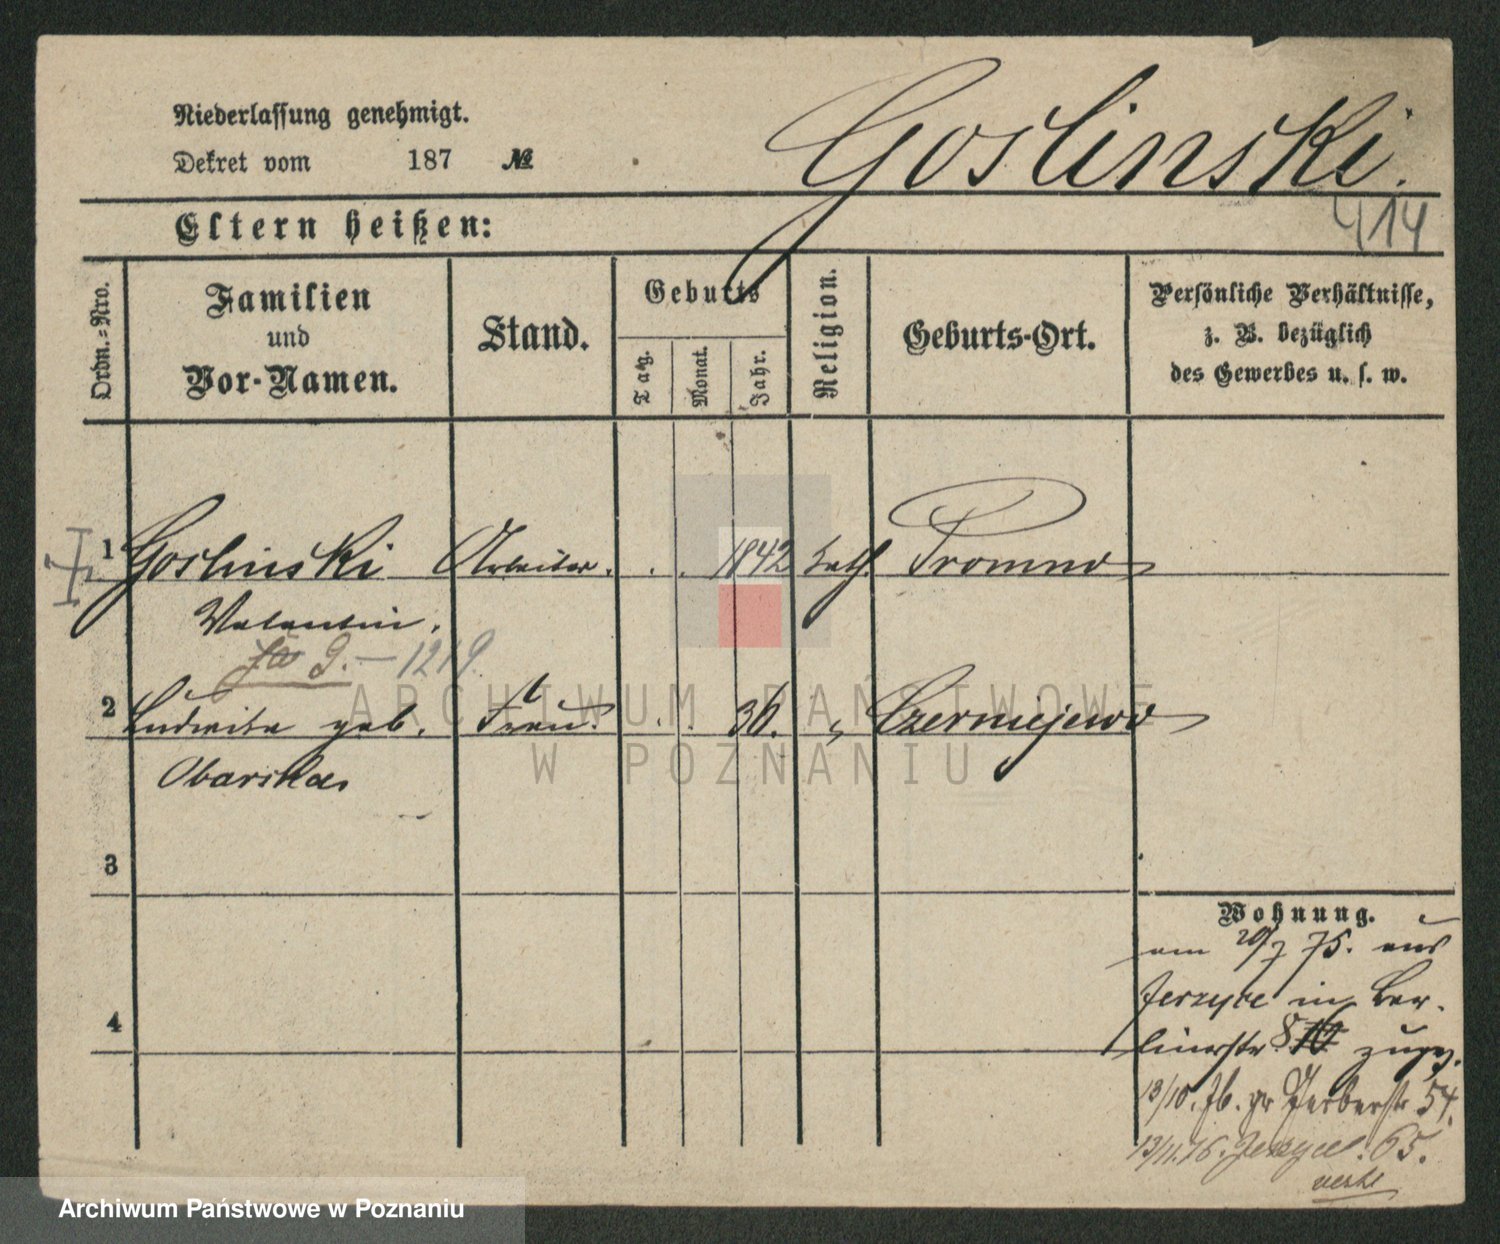 Niederlassung genehmigt.
Dekret vom 187 №
Goslinski.
414
Eltern heißen:
Ordn.-Nro.
Familien
und
Vor-Namen.
Stand.
Geburts
Tag.
Monat.
Jahr.
Religion.
Geburts-Ort.
Persönliche Verhältnisse,
z. B. bezüglich
des Gewerbes u. s. w.
1 Goslinski Arbeiter. . . 1842 kath. Promno
Valentin.
9. — 1219
2 Ludwika geb. Frau. . . 36. " Czerniejewo
Obarska
3
4
Wohnung.
am 20/7 75. aus
Jerzyce in Ber-
linerstr. 8 16 zugez.
13/10. Gerberstr 54.
13/11.76. Jerzyce. 65.
ARCHIWUM PAŃSTWOWE
W POZNANIU
Archiwum Państwowe w Poznaniu